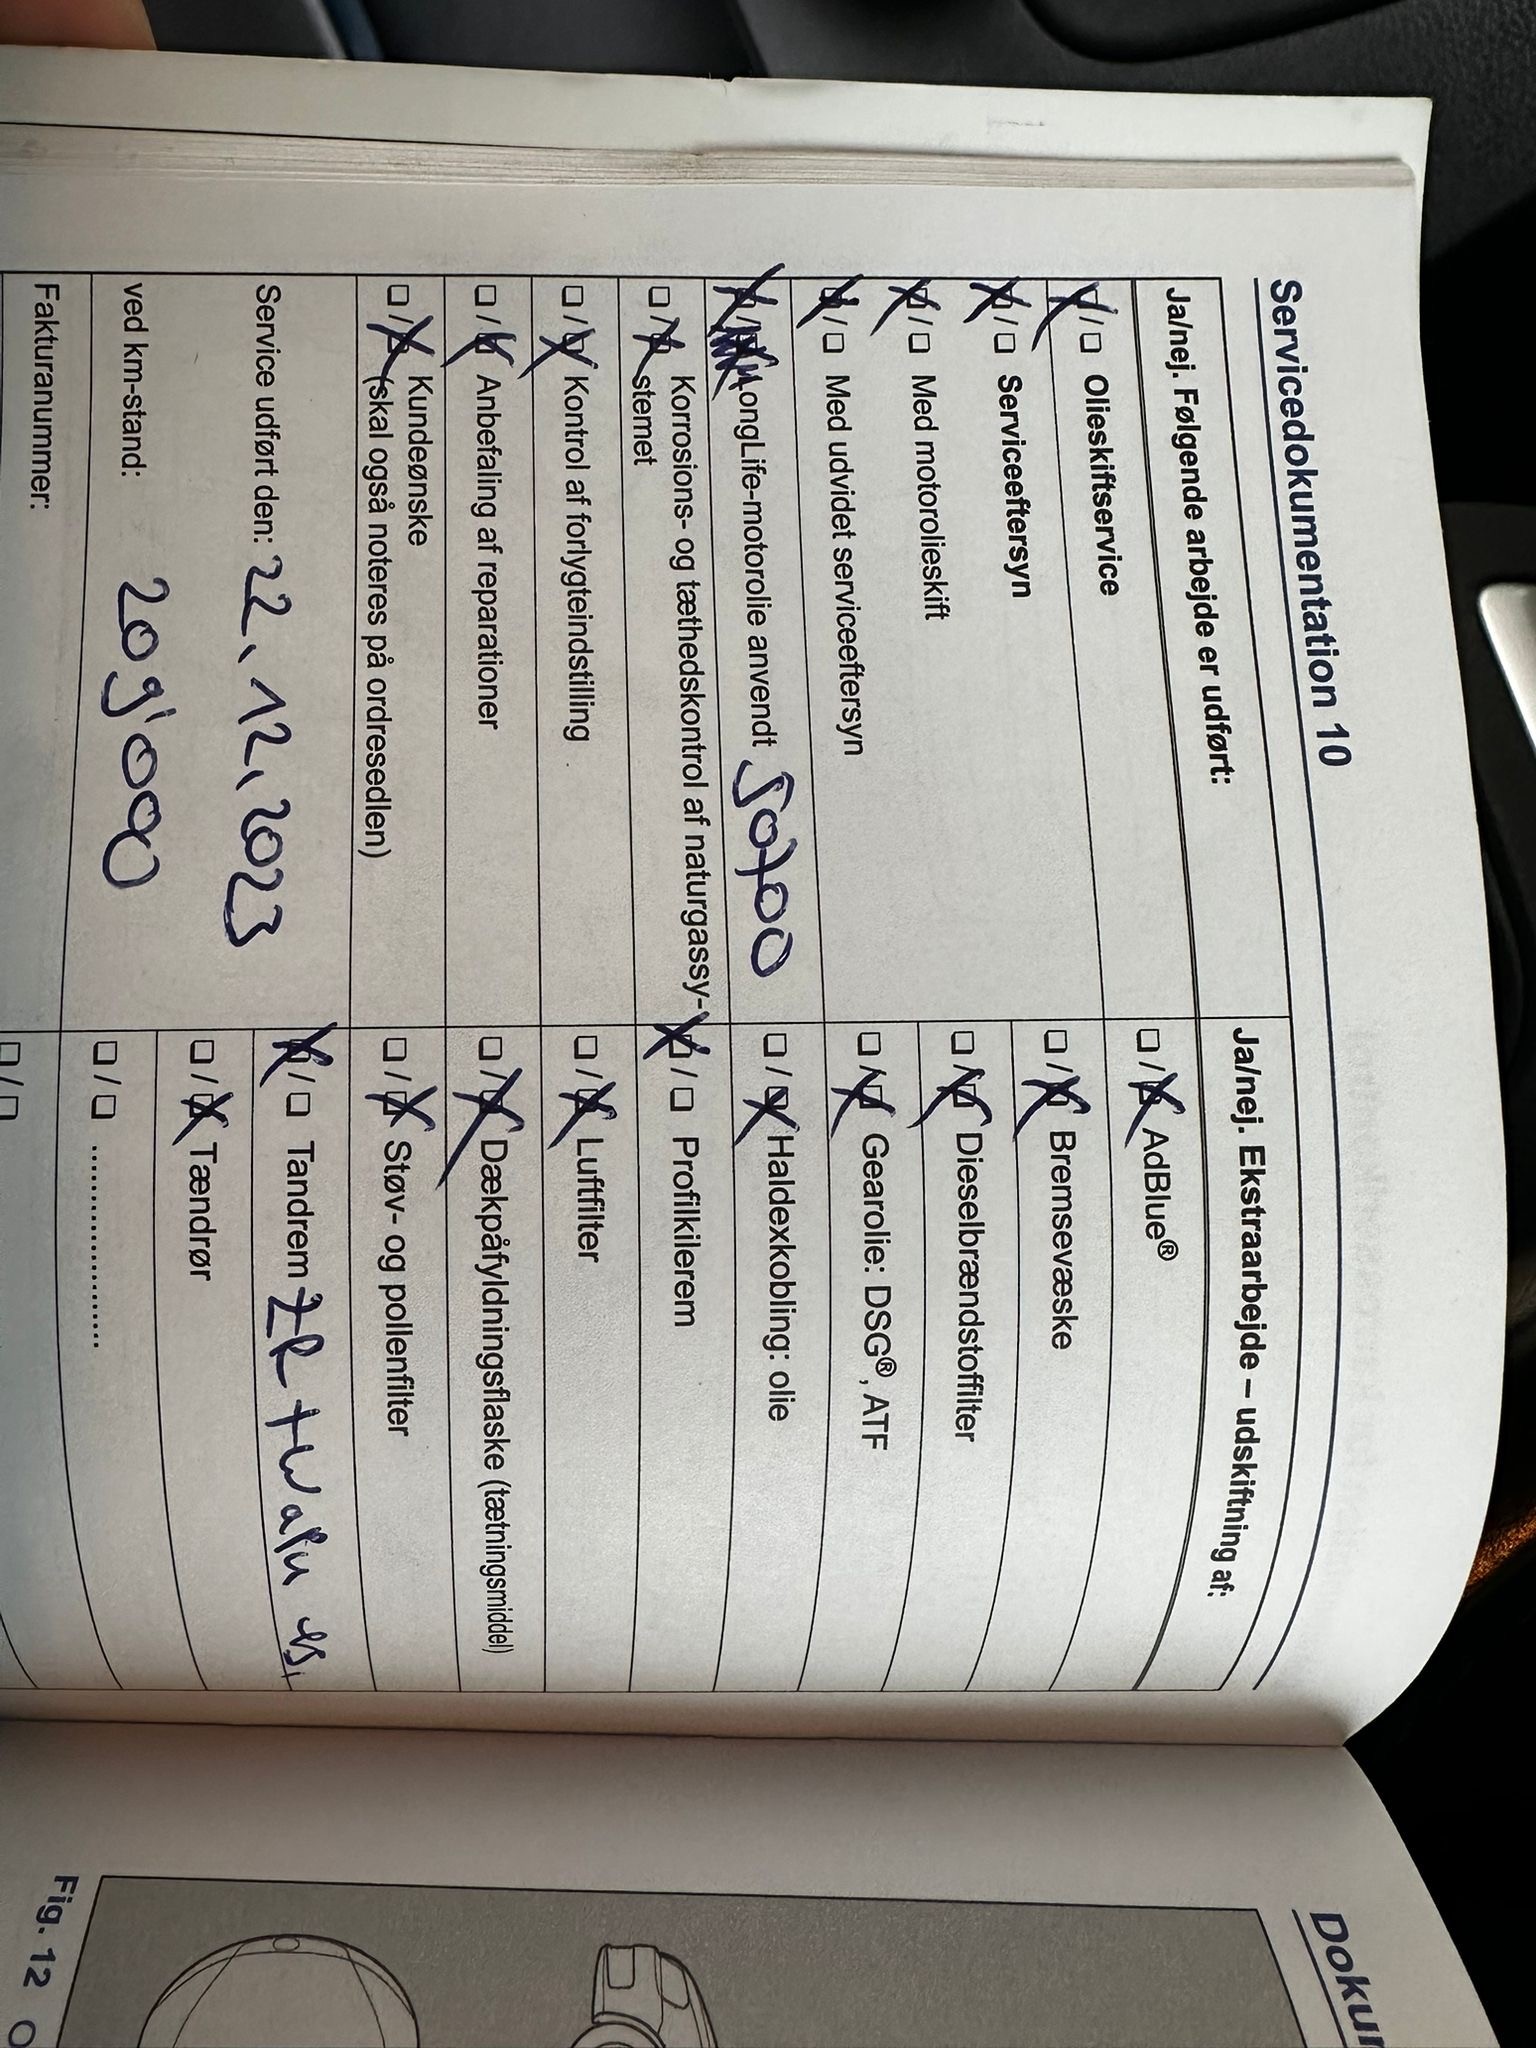 Servicedokumentation 10
Ja/nej. Følgende arbejde er udført:
☒/☐ Olieskiftservice
☒/☐ Serviceeftersyn
☒/☐ Med motorolieskift
☒/☐ Med udvidet serviceeftersyn
LongLife-motorolie anvendt 50700
☐/☒ Korrosions- og tæthedskontrol af naturgassy-
stemet
☐/☒ Kontrol af forlygteindstilling
☐/☒ Anbefaling af reparationer
☐/☒ Kundeønske
(skal også noteres på ordresedlen)
Service udført den: 22.12.2023
ved km-stand: 209'000
Fakturanummer:
Ja/nej. Ekstraarbejde – udskiftning af:
☐/☒ AdBlue®
☐/☒ Bremsevæske
☐/☒ Dieselbrændstoffilter
☐/☒ Gearolie: DSG®, ATF
☐/☒ Haldexkobling: olie
☒/☐ Profilkilerem
☐/☒ Luftfilter
☐/☒ Dækpåfyldningsflaske (tætningsmiddel)
☐/☒ Støv- og pollenfilter
☒/☐ Tandrem ZR + WaPu
☐/☒ Tændrør
☐/☐ ....................
☐/☐
Dokum
Fig. 12